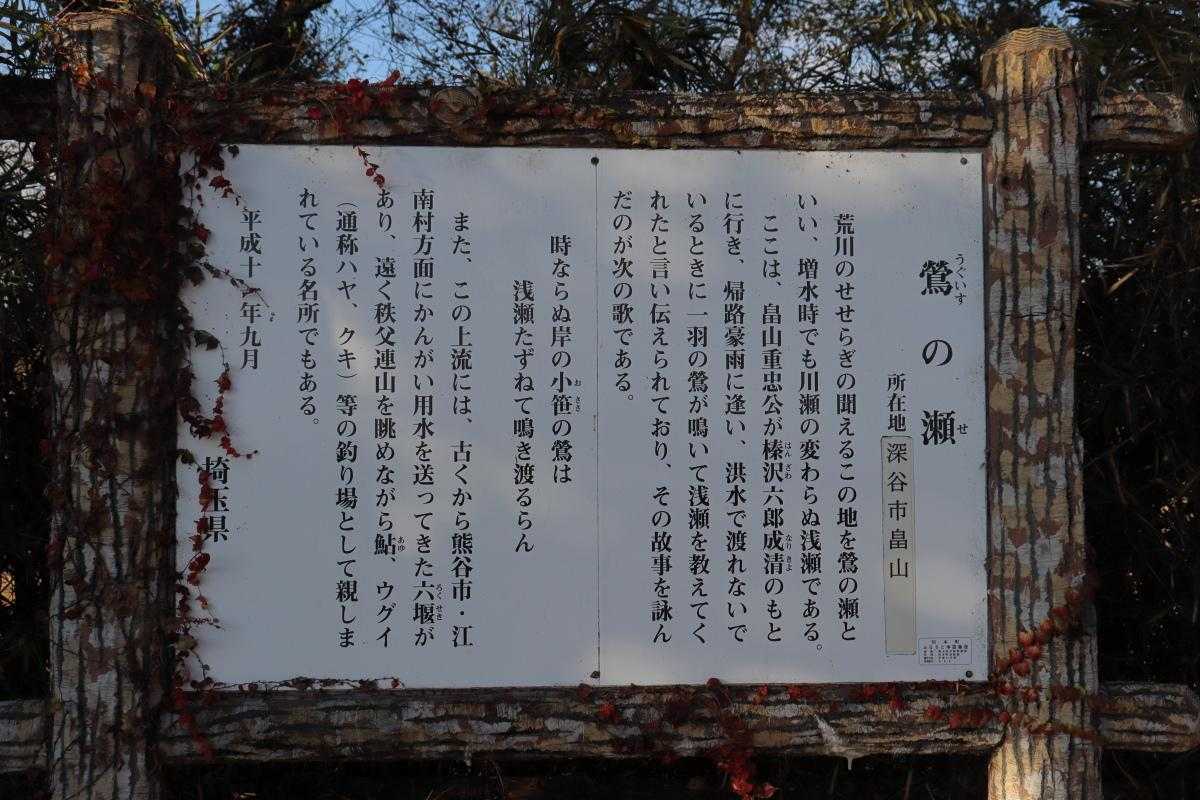 鶯の瀬
うぐいす
せ
所在地 深谷市畠山
荒川のせせらぎの聞えるこの地を鶯の瀬と
いい、増水時でも川瀬の変わらぬ浅瀬である。
ここは、畠山重忠公が榛沢六郎成清のもと
はんざわ
なりきよ
に行き、帰路豪雨に逢い、洪水で渡れないで
いるときに一羽の鶯が鳴いて浅瀬を教えてく
れたと言い伝えられており、その故事を詠ん
だのが次の歌である。
時ならぬ岸の小笹の鶯は
おささ
浅瀬たずねて鳴き渡るらん
また、この上流には、古くから熊谷市・江
南村方面にかんがい用水を送ってきた六堰が
ろくせき
あり、遠く秩父連山を眺めながら鮎、ウグイ
あゆ
（通称ハヤ、クキ）等の釣り場として親しま
れている名所でもある。
平成十年九月
埼玉県